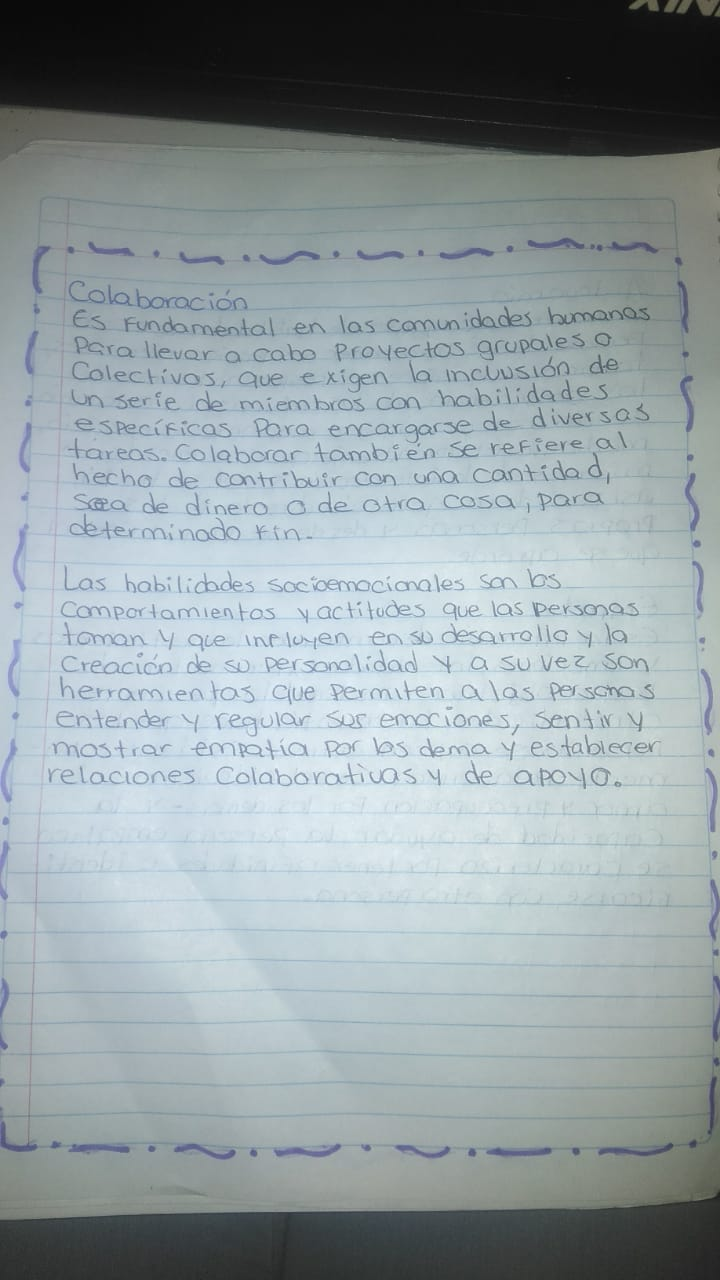 Colaboración
Es Fundamental en las comunidades humanas
Para llevar a cabo Proyectos grupales o
Colectivos, que exigen la inclusión de
un serie de miembros con habilidades
específicas Para encargarse de diversas
tareas. Colaborar también se refiere al
hecho de contribuir con una cantidad,
sea de dinero o de otra cosa, para
determinado fin.
Las habilidades socioemocionales son los
Comportamientos y actitudes que las personas
toman y que influyen en su desarrollo y la
Creación de su personalidad y a su vez son
herramientas que permiten a las personas
entender y regular sus emociones, sentir y
mostrar empatía por los dema y establecer
relaciones Colaborativas y de apoyo.